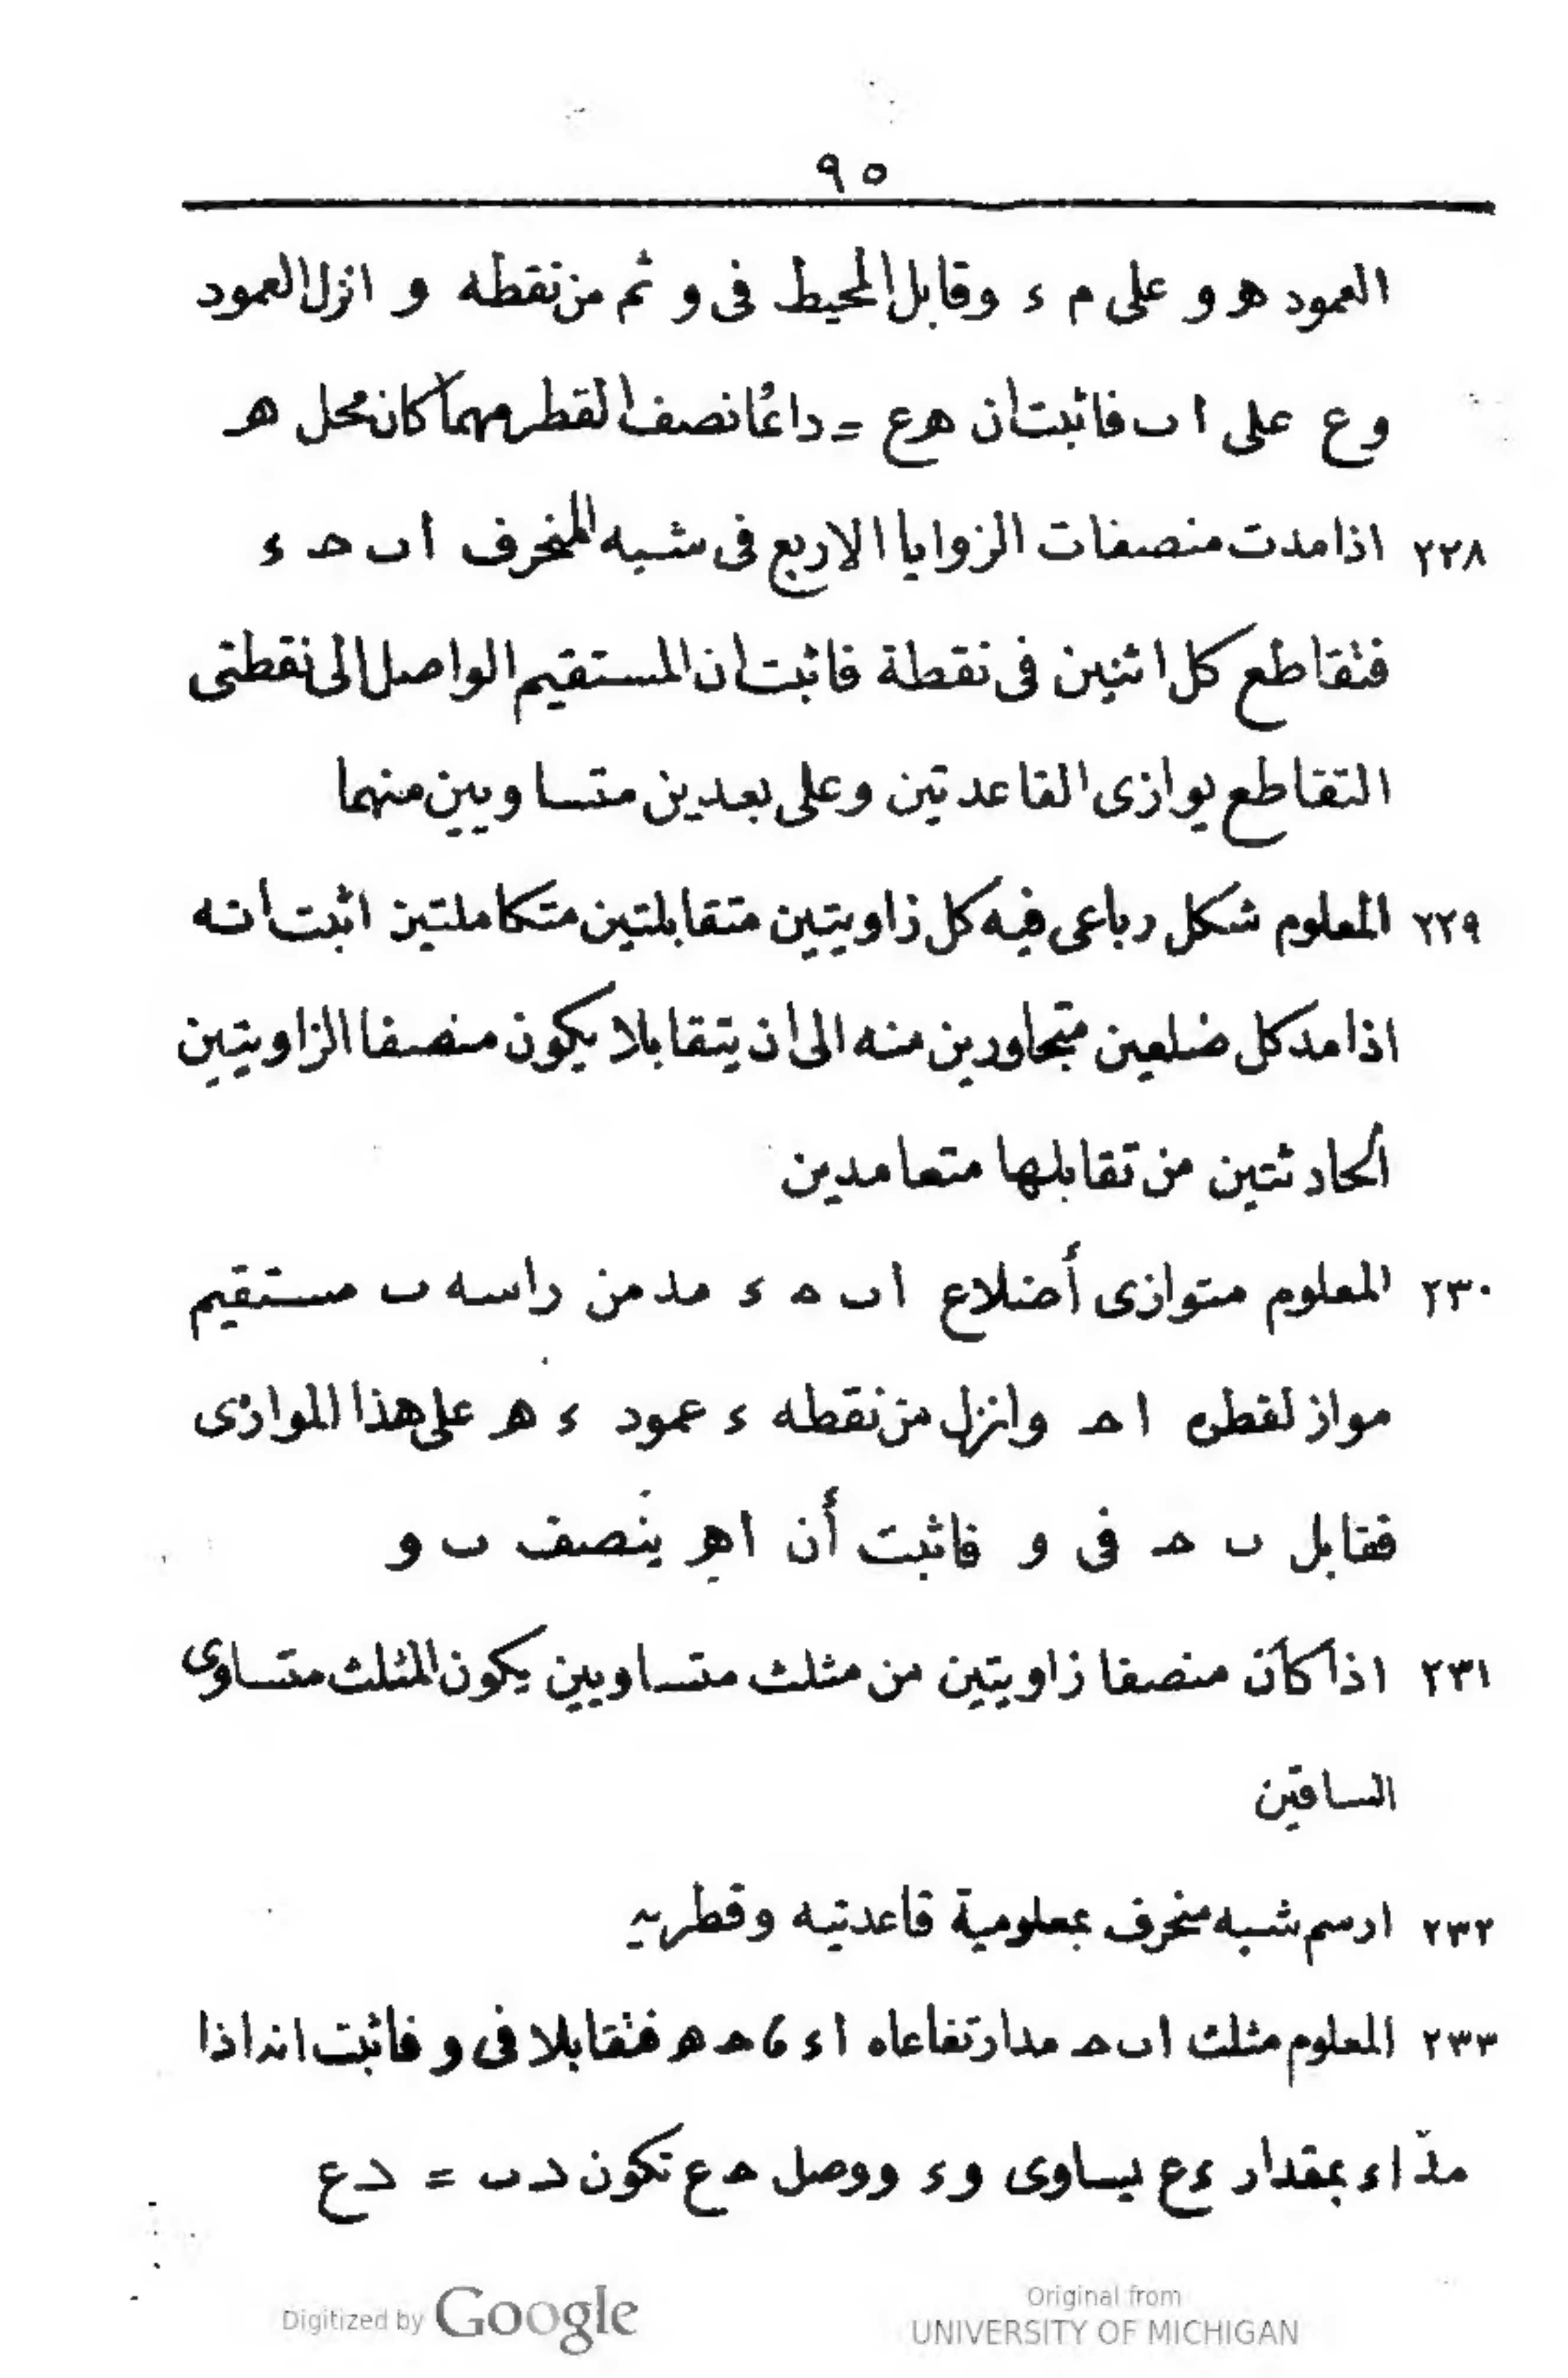 ٩٥
العمود هو على م ء وقابل المحيط فى و ثم من نقطه و انزل العمود
وع على اب فاثبت ان هع = دائما نصف القطر مهما كان محل هـ
٢٢٨ اذا مدت منصفات الزوايا الاربع فى شبه المنحرف اب حـ ء
فتقاطع كل اثنين فى نقطة فاثبت ان المستقيم الواصل الى نقطتى
التقاطع يوازى القاعدتين وعلى بعدين متساويين منهما
٢٢٩ المعلوم شكل رباعى فيه كل زاويتين متقابلتين متكاملتين اثبت أنه
اذا مد كل ضلعين متجاورين منه الى ان يتقابلا يكون منصفا الزاويتين
الحادثتين من تقابلها متعامدين
٢٣٠ المعلوم متوازى أضلاع اب حـ ء مد من راسه ب مستقيم
مواز لقطره احـ وانزل من نقطه ء عمود ء هـ على هذا الموازى
فقابل ب حـ فى و فاثبت أن اهـ ينصف ب و
٢٣١ اذا كان منصفا زاويتين من مثلث متساويين يكون المثلث متساوى
الساقين
٢٣٢ ارسم شبه منحرف بمعلومية قاعدتيه وقطريه
٢٣٣ المعلوم مثلث اب حـ مد ارتفاعاه اء ، حـ هـ فتقابلا فى و فاثبت انه اذا
مدّ اء بمقدار ءع يساوى وء ووصل حـ ع تكون دب = دع
Digitized by Google
Original from
UNIVERSITY OF MICHIGAN